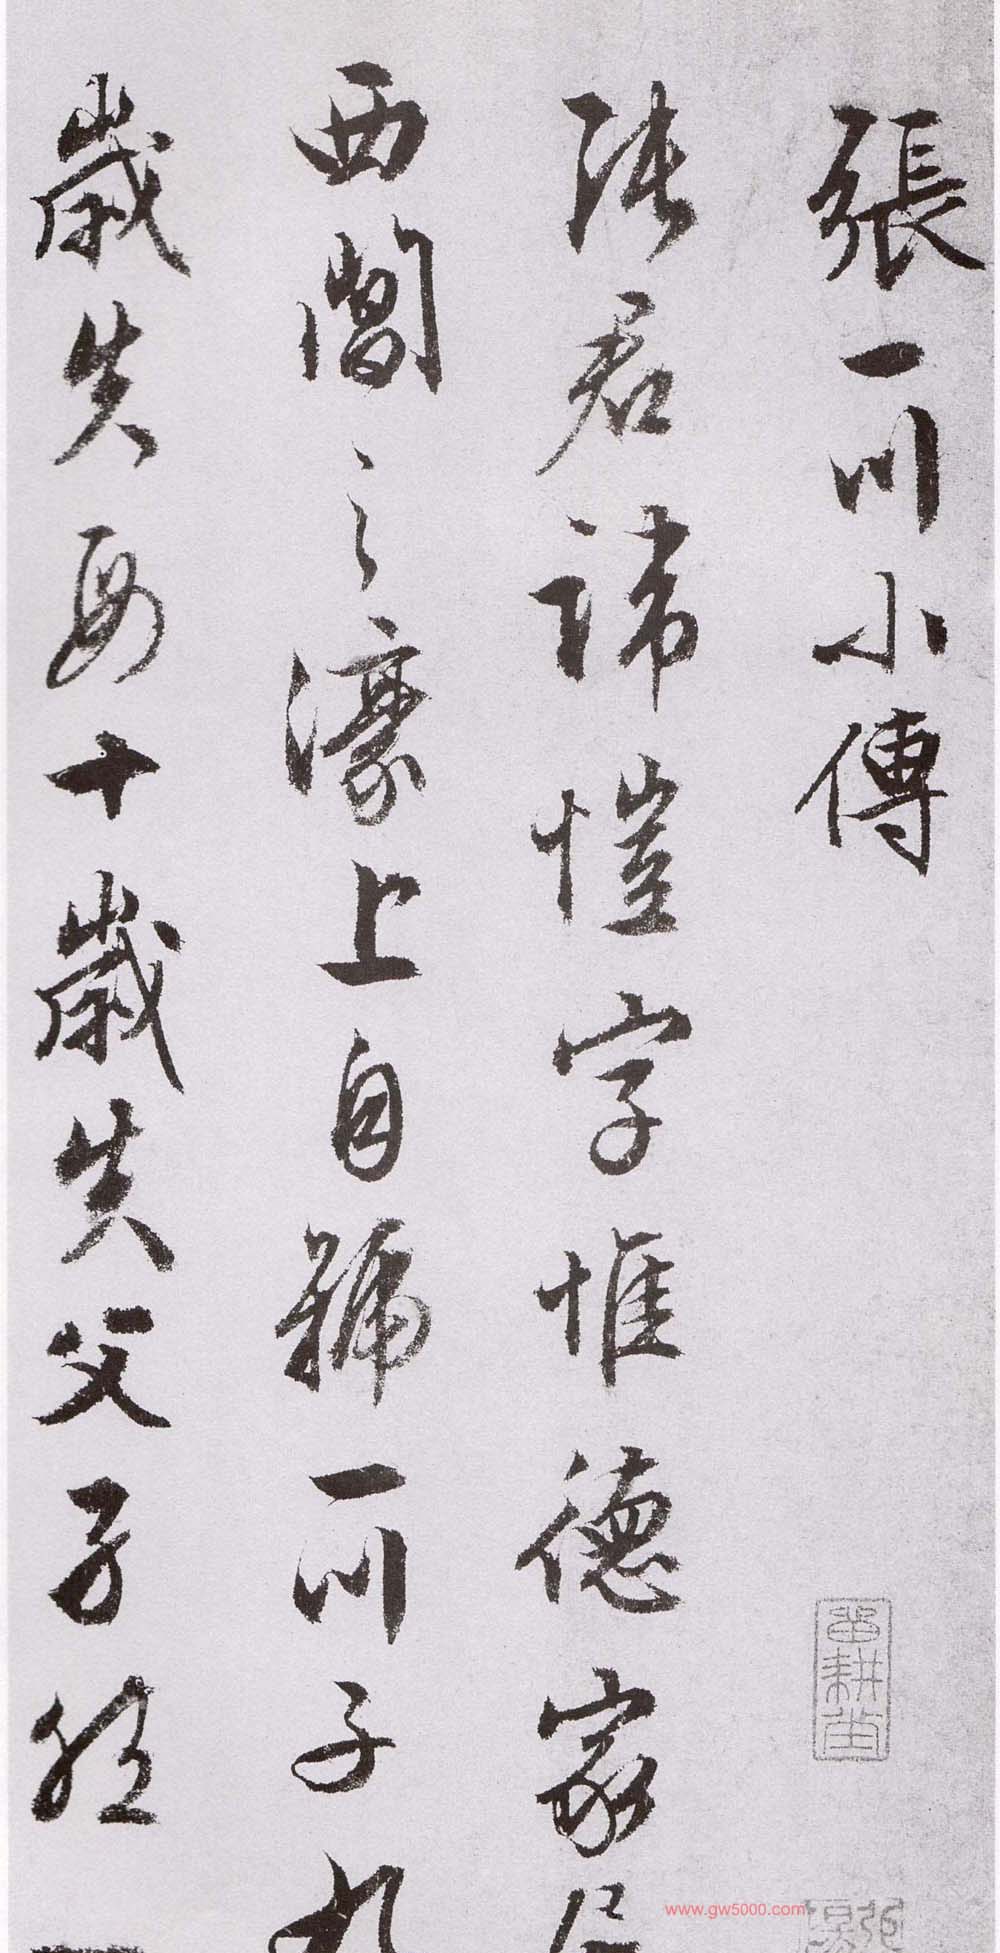 張一川小傳
張君諱愷字惟德家居
西閶之濠上自號一川子九
歲失母十歲失父孑然
www.gw5000.com